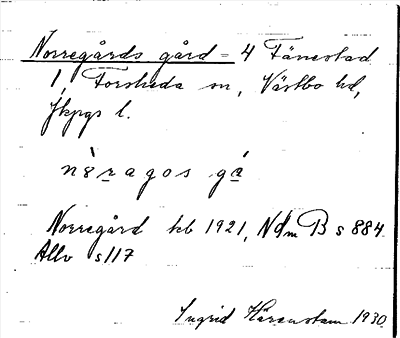 Norregårds gård = 4 Fänestad
1, Forsheda sn, Västbo hd,
Jkpgs l.
nȯragos gá
Norregård kb 1921, Ndm B s 884.
Allv s 117
Ingrid Härenstam 1930.